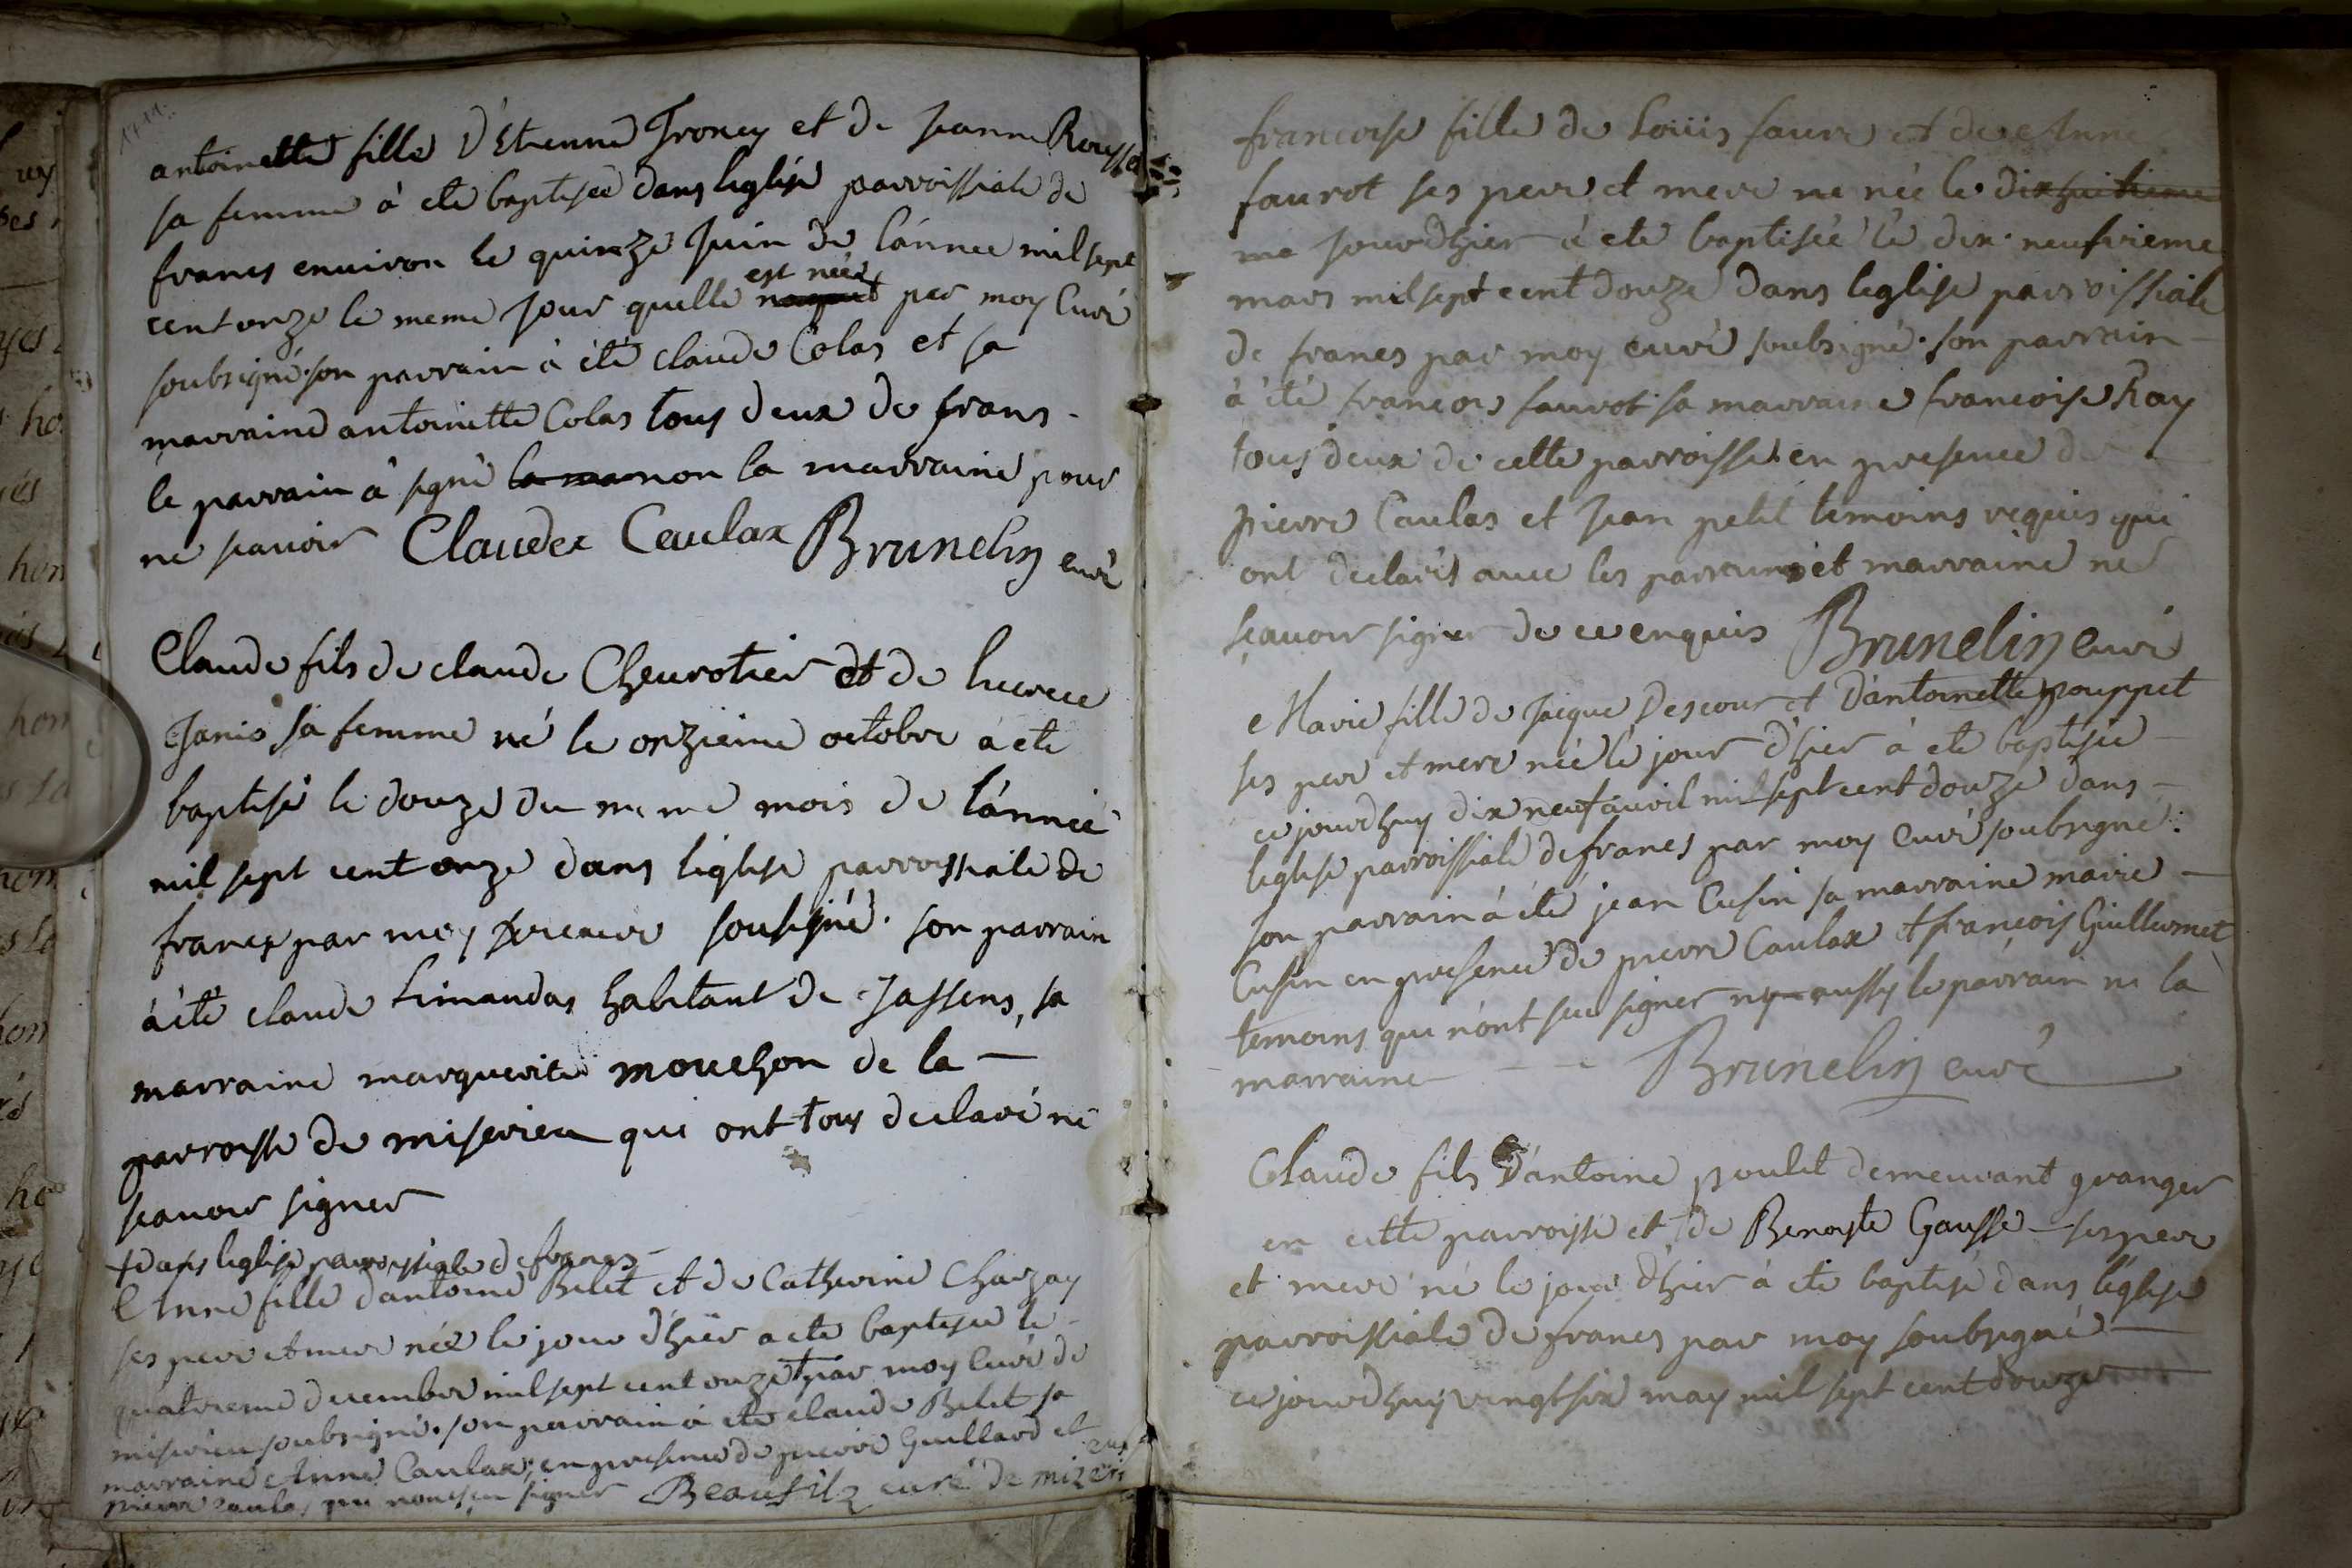 1711.
antoinette fille d'Etienne Troncy et de Jeanne
sa femme à ete baptisée dans leglise parroissiale de
francs environ le quinze Juin de l'année mil sept
cent onze le meme jour quelle naquit est née par moy Curé
soubsigné. son parrain à été claude Colas et sa
marraine antoinette Colas tous deux de frans
le parrain à signé la ma non la marraine pour
ne scavoir Claudex Caulax Brunelin curé
Claude fils de claude Cheurotier et de lucrece
Janis sa femme né le onzieme octobre à ete
baptisé le douze du meme mois de l'année
mil sept cent onze dans léglise parroissiale de
francs par moy sousigné. son parrain
à été claude Limandas habitant de Jassens, sa
marraine marguerite mouchon de la
parroisse de miserieu qui ont tous declaré ne
scavoir signer
+ dans leglise parroissiale de francs
Anne fille dantoine Belet et de Catherine Charzay
ses pere et mere née le jour d'hier a ete baptisée le
quatrieme decembre mil sept cent onze + par moy Curé de
miserieu soubsigné. son parrain à ete claude Belet sa
marraine Anne Caulax, en presence de pierre Guillard et
pierre caulas qui signer Beaufilz curé de mizerieu
francoise fille de Loüis faure et de Anne
faurot ses pere et mere ne née le dixhuitieme
me jourdhier à ete baptisée le dix neufvieme
mars mil sept cent douze dans leglise parroissiale
de francs par moy curé soubsigné. son parrain
à été francois faurot sa marraine francoise Ray
tous deux de cette parroisse en presence de
pierre Caulas et Jean petit temoins requis qui
ont declarés avec les parrains et marraine ne
sçavoir signer de ce enquis Brunelin curé
Marie fille de Jacque Descour et d'antoinette pouppet
ses pere et mere née le jour d'hier à ete baptisée
ce jourdhuy dix neuf avril mil sept cent douze dans
leglise parroissiale de francs par moy Curé soubsigné.
son parrain à été jean Cusin sa marraine marie
Cusin en presence de pierre Caulax et françois Guillermet
temoins qui n'ont sceu signer ny aussy le parrain ni la
marraine Brunelin curé
Claude fils d'antoine poulet demeurant granger
en cette parroisse et de Benoite Gausse ses pere
et mere né le jour d'hier à ete baptisé dans l'église
parroissiale de francs par moy soubsigné
ce jourdhuy vingt six may mil sept cent douze